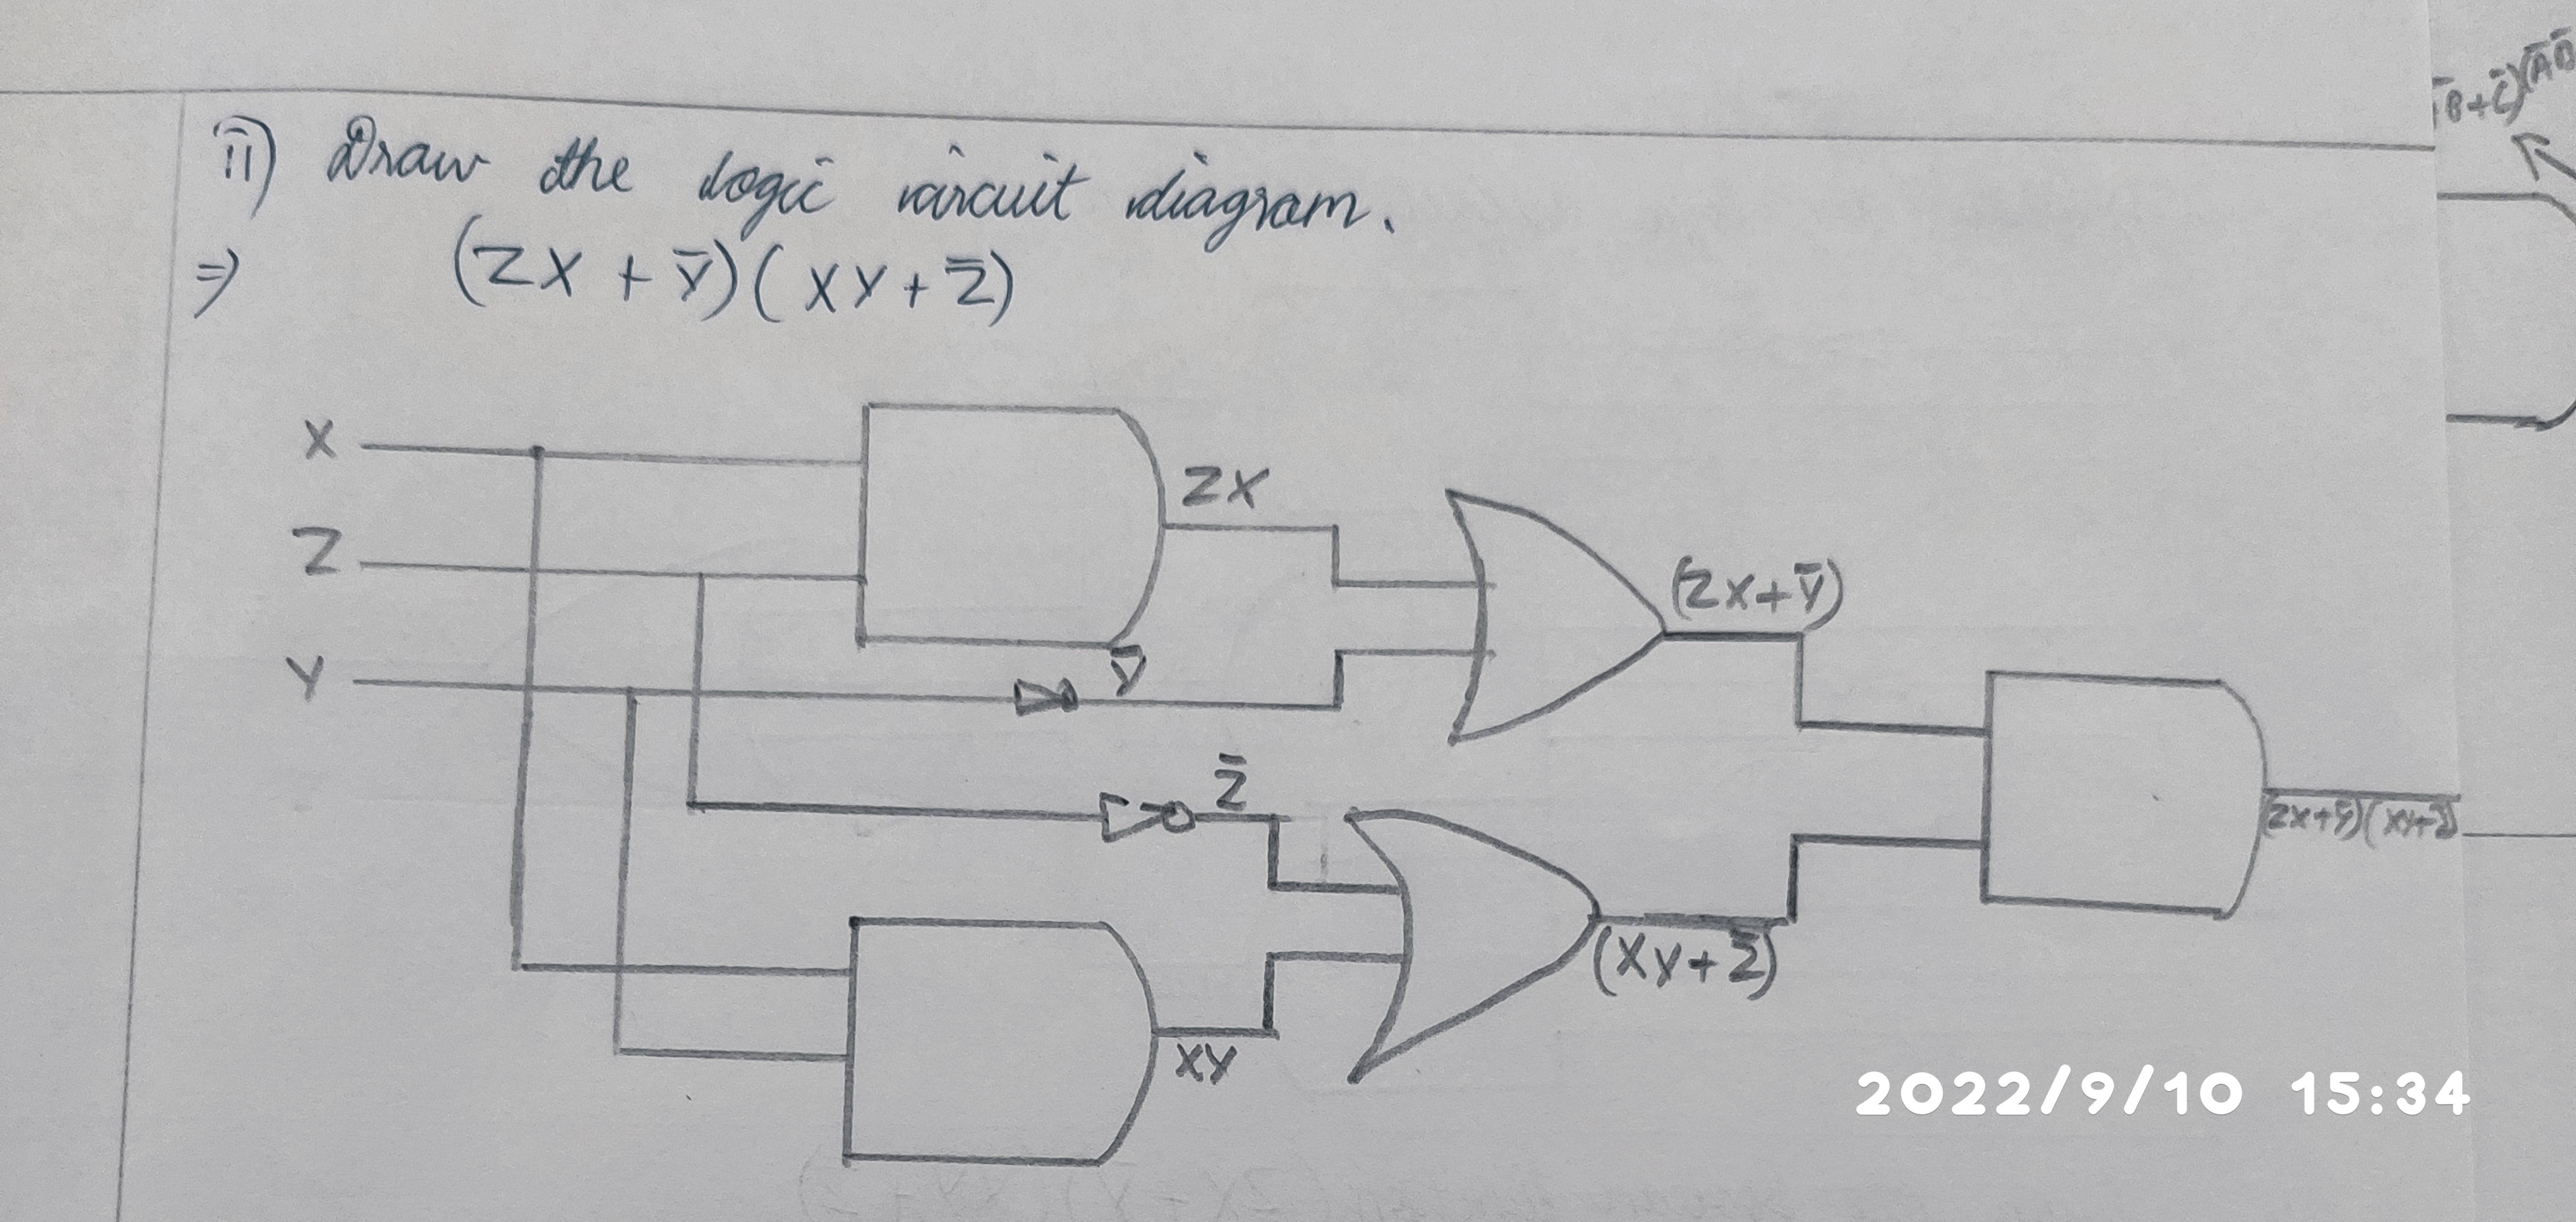 ii) Draw the logic circuit diagram.
⇒ (ZX + Y̅)(XY + Z̅)
X
ZX
Z
(ZX+Y̅)
Y
Y̅
Z̅
(ZX+Y̅)(XY+Z̅)
(XY+Z̅)
XY
2022/9/10 15:34